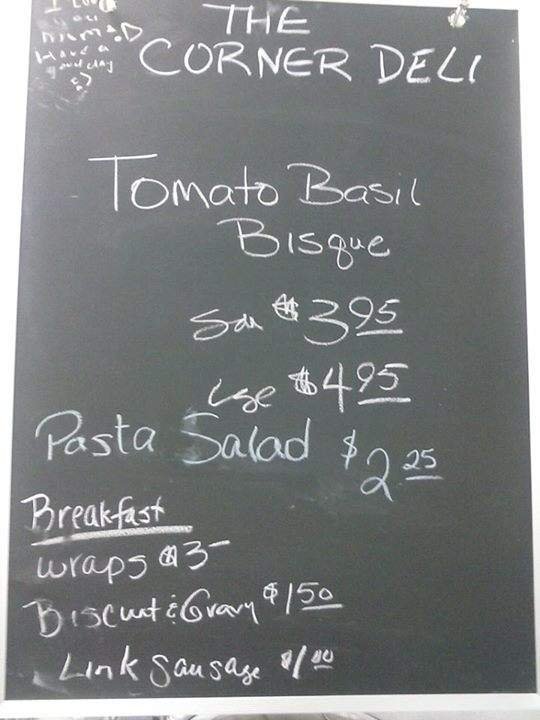 I Love
you
mom :D
Have a
good day
:)
THE
CORNER DELI
Tomato Basil
Bisque
Sm $3.95
Lge $4.95
Pasta Salad $2.25
Breakfast
wraps $3-
Biscuit & Gravy $1.50
Link Sausage $1.00